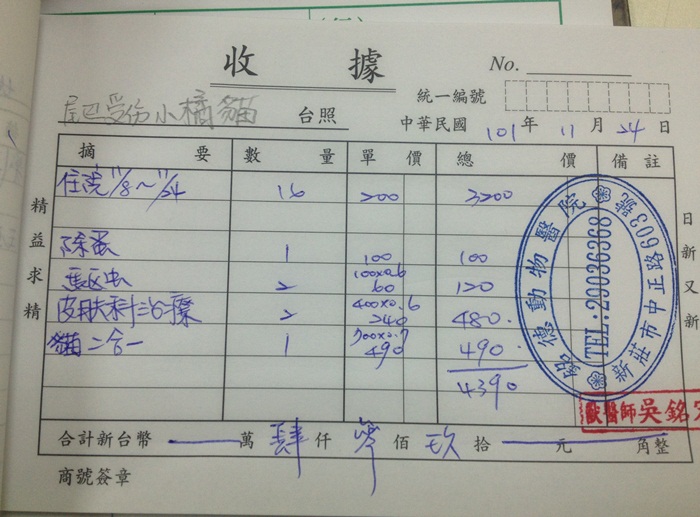 收 據
No.
統一編號
尾巴受伤小橘貓 台照
中華民國 101 年 11 月 24 日
摘 要 數 量 單 價 總 價 備 註
住院 11/8～11/24 16 200 3200
除蚤 1 100 100
100×0.6
驱虫 2 60 120
400×0.6
皮膚科治療 2 240 480.
700×0.7
貓二合一 1 490 490.
4390
合計新台幣 萬 肆 仟 佰 玖 拾 元 角整
商號簽章
精益求精
日新又新
德動物醫院
TEL:29036368
新莊市中正路603號
獸醫師 吳銘